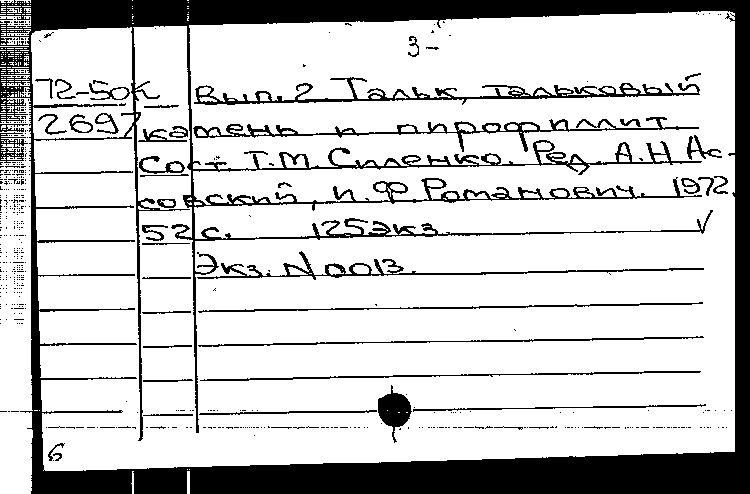 3-
72-50к Вып. 2 Тальк, тальковый
2697 камень и пирофиллит.
Сост. Т.М. Силенко. Ред. А.Н Ас-
совский, И.Ф. Романович. 1972.
52 с. 125экз. ✓
Экз. N 0013.
6